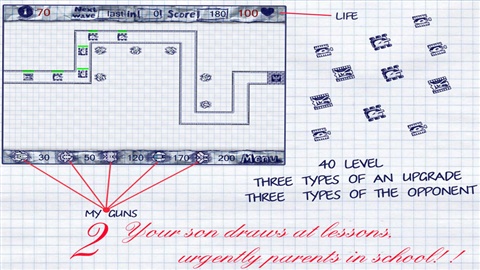 70 Next wave last in! 01 Score! 180 100
LIFE
30 50 110 170 200 Menu
40 LEVEL
THREE TYPES OF AN UPGRADE
THREE TYPES OF THE OPPONENT
MY GUNS
2 Your son draws at lessons,
urgently parents in school! !